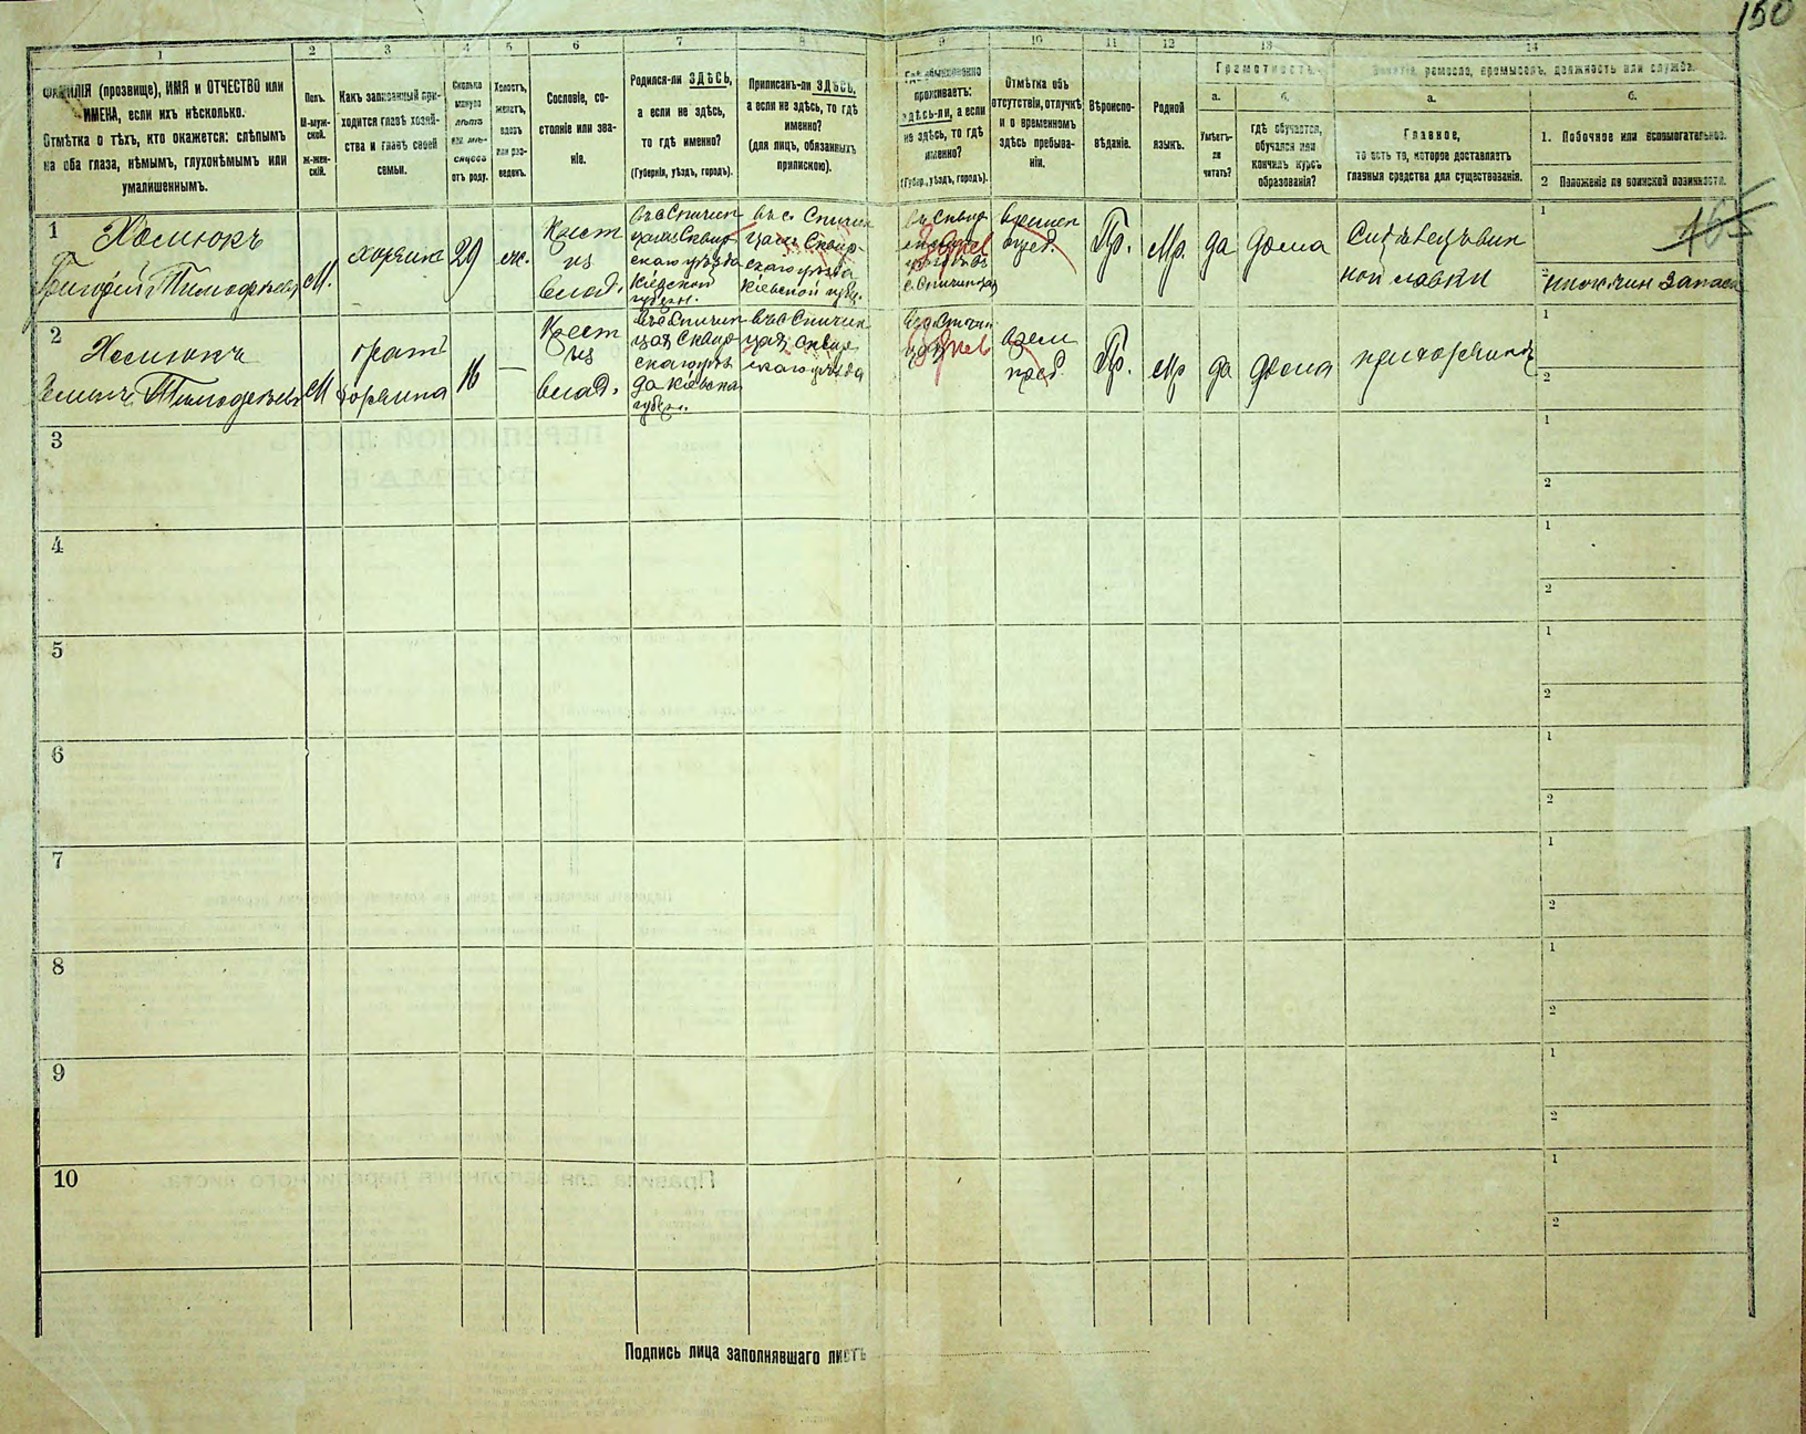 150
1 2 3 4 5 6 7 8 9 10 11 12 13 14
ФАМИЛІЯ (прозвище), ИМЯ и ОТЧЕСТВО или
ИМЕНА, если ихъ нѣсколько.
Отмѣтка о тѣхъ, кто окажется: слѣпымъ
на оба глаза, нѣмымъ, глухонѣмымъ или
умалишеннымъ.
Полъ.
М-муж-
ской.
Ж-жен-
скій.
Какъ записанный при-
ходится главѣ хозяй-
ства и главѣ своей
семьи.
Сколько
минуло
лѣтъ
или мѣ-
сяцевъ
отъ роду.
Холостъ,
женатъ,
вдовъ
или раз-
веденъ.
Сословіе, со-
стояніе или зва-
ніе.
Родился-ли ЗДѢСЬ,
а если не здѣсь,
то гдѣ именно?
(Губернія, уѣздъ, городъ).
Приписанъ-ли ЗДѢСЬ,
а если не здѣсь, то гдѣ
именно?
(для лицъ, обязанныхъ
припискою).
Гдѣ обыкновенно
проживаетъ:
здѣсь-ли, а если
не здѣсь, то гдѣ
именно?
(Губер., уѣздъ, городъ).
Отмѣтка объ
отсутствіи, отлучкѣ
и о временномъ
здѣсь пребыва-
ніи.
Вѣроиспо-
вѣданіе.
Родной
языкъ.
Грамотность.
а.
Умѣетъ-
ли
читать?
б.
гдѣ обучается,
обучался или
кончилъ курсъ
образованія?
Занятіе, ремесло, промыселъ, должность или служба.
а.
Главное,
то есть то, которое доставляетъ
главныя средства для существованія.
б.
1. Побочное или вспомогательное.
2 Положеніе по воинской повинности.
1
Хомюкъ
Григорій Тимофѣевъ
М.
хозяинъ
29
ж.
Крест
из
влад.
въ с Спичин
цахъ Сквир
скаго уѣзда
Кіевской
губерн.
въ с. Спичин
цахъ Сквир-
скаго уѣзда
Кіевской губ.
с. Спичинцах
времен
Пр.
Мр.
да
дома
Сидѣлецъ вин
ной лавки
1
2
165
2
Хомюкъ
Тимофѣевъ
М
братъ
хозяина
16
—
Крест
из
влад.
въ с Спичин
цах Сквир
скаго уѣз
да Кіевской
губерн.
въ с Спичин
цах Сквир
скаго уѣзда
Пр.
Мр
да
дома
1
2
3
1
2
4
1
2
5
1
2
6
1
2
7
1
2
8
1
2
9
1
2
10
1
2
Подпись лица заполнявшаго листъ